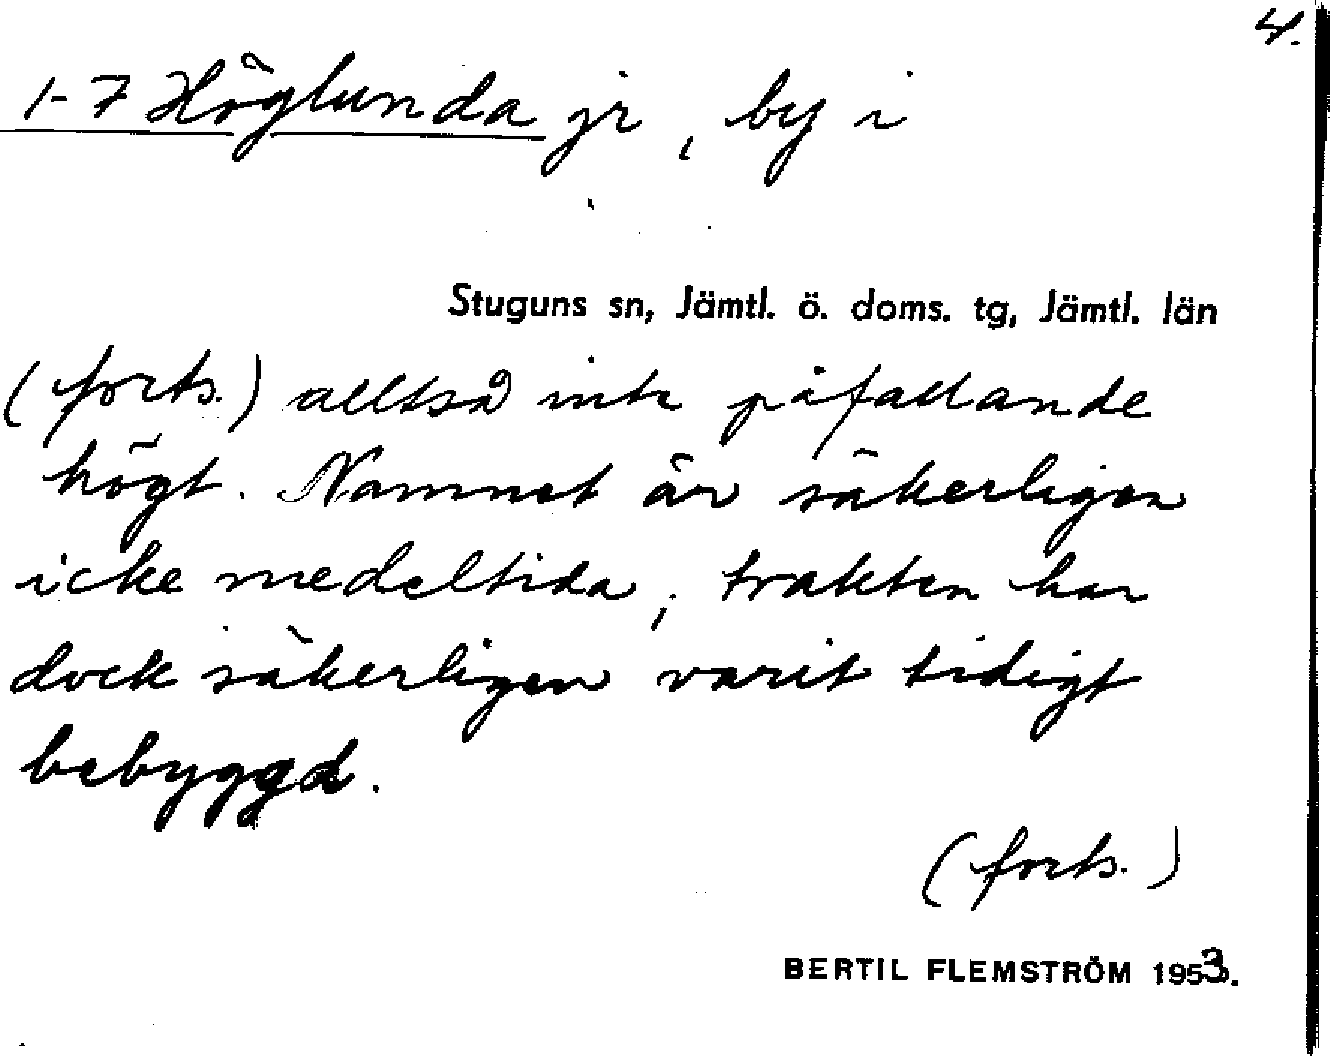 4.
1-7 Höglunda jr, by i
Stuguns sn, Jämtl. ö. doms. tg, Jämtl. län
(forts.) alltså inte påfallande
högt. Namnet är säkerligen
icke medeltida, trakten har
dock säkerligen varit tidigt
bebyggd.
(forts.)
BERTIL FLEMSTRÖM 1953.